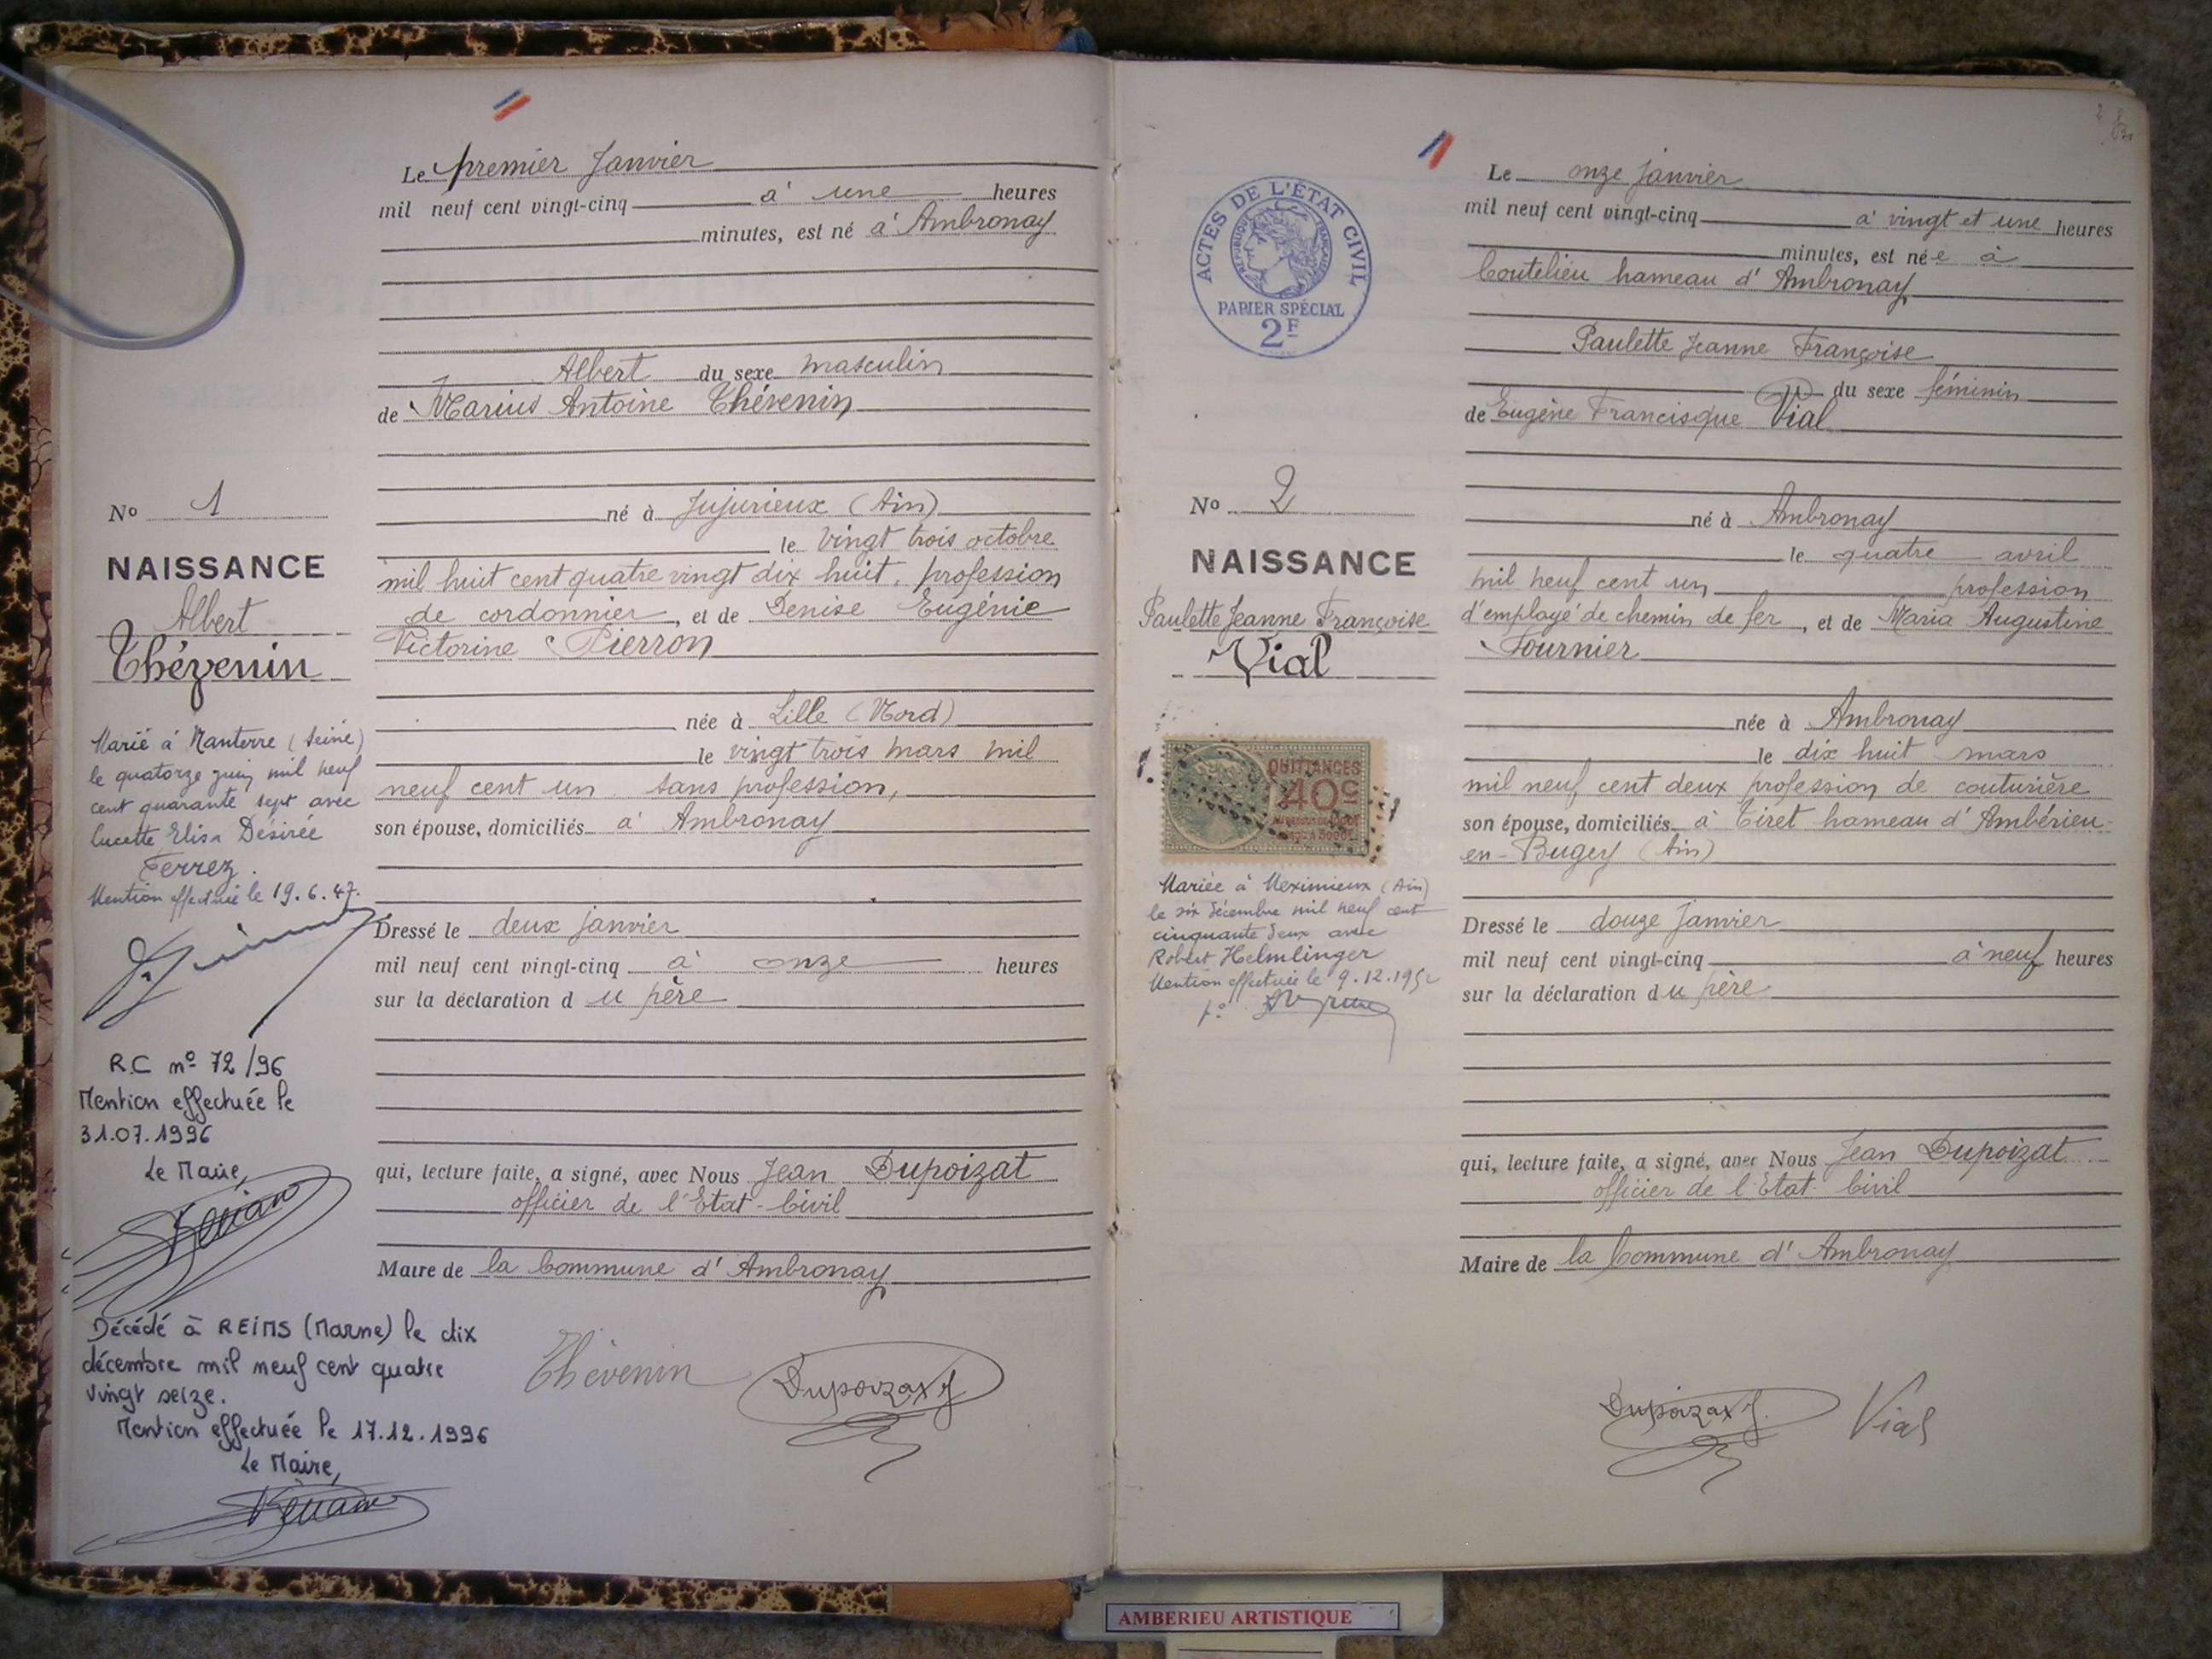 Le premier Janvier
mil neuf cent vingt-cinq à une heures
minutes, est né à Ambronay
Albert du sexe masculin
de Marius Antoine Thévenin
né à Jujurieux (Ain)
le vingt trois octobre
mil huit cent quatre vingt dix huit, profession
de cordonnier, et de Denise Eugénie
Victorine Pierron
née à Lille (Nord)
le vingt trois mars mil
neuf cent un sans profession,
son épouse, domiciliés à Ambronay
Dressé le deux janvier
mil neuf cent vingt-cinq à onze heures
sur la déclaration du père
qui, lecture faite, a signé, avec Nous Jean Dupoizat
officier de l'Etat-Civil
Maire de la Commune d'Ambronay
Thévenin Dupoizat J
No 1
NAISSANCE
Albert
Thévenin
Marié à Nanterre (Seine)
le quatorze juin mil neuf
cent quarante sept avec
Lucette Elisa Désirée
Ferrez.
Mention effectuée le 19.6.47.
R.C nº 72/96
Mention effectuée le
31.07.1996
Le Maire,
Décédé à REIMS (Marne) le dix
décembre mil neuf cent quatre
vingt seize.
Mention effectuée le 17.12.1996
Le Maire,
ACTES DE L'ÉTAT CIVIL
RÉPUBLIQUE FRANÇAISE
PAPIER SPÉCIAL
2F
No 2
NAISSANCE
Paulette Jeanne Françoise
Vial
QUITTANCES
40c
Mariée à Meximieux (Ain)
le six décembre mil neuf cent
cinquante deux avec
Robert Helmlinger
Mention effectuée le 9.12.1952
Le onze janvier
mil neuf cent vingt-cinq à vingt et une heures
minutes, est née à
Coutelieu hameau d'Ambronay
Paulette Jeanne Françoise
du sexe féminin
de Eugène Francisque Vial
né à Ambronay
le quatre avril
mil neuf cent un profession
d'employé de chemin de fer, et de Maria Augustine
Fournier
née à Ambronay
le dix huit mars
mil neuf cent deux profession de couturière
son épouse, domiciliés à Tiret hameau d'Ambérieu-
en-Bugey (Ain)
Dressé le douze janvier
mil neuf cent vingt-cinq à neuf heures
sur la déclaration du père
qui, lecture faite, a signé, avec Nous Jean Dupoizat
officier de l'Etat-Civil
Maire de la Commune d'Ambronay
Dupoizat J. Vial
AMBERIEU ARTISTIQUE